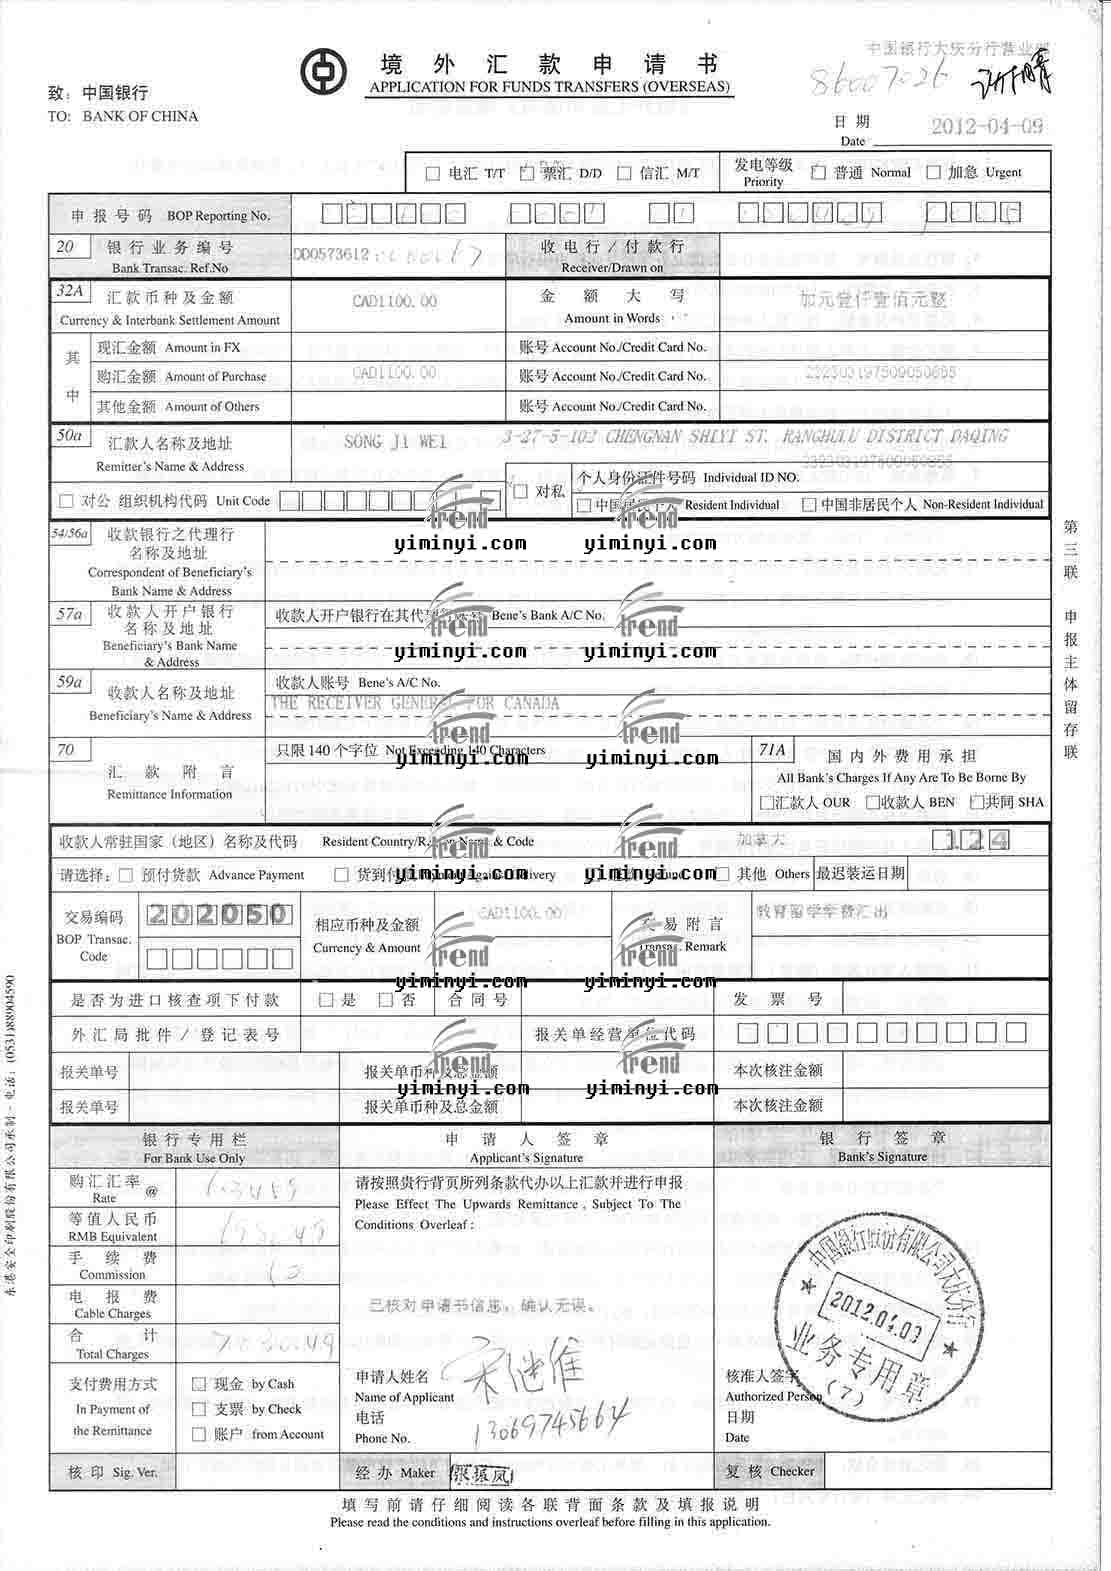 中国银行大庆分行营业部
境外汇款申请书
APPLICATION FOR FUNDS TRANSFERS (OVERSEAS)
86007026
致：中国银行
TO: BANK OF CHINA
日期
Date 2012-04-09
电汇 T/T 票汇 D/D 信汇 M/T 发电等级 Priority 普通 Normal 加急 Urgent
申报号码 BOP Reporting No.
20 银行业务编号 Bank Transac. Ref.No DD0573612 收电行／付款行 Receiver/Drawn on
32A 汇款币种及金额 Currency & Interbank Settlement Amount CAD1100.00 金额大写 Amount in Words 加元壹仟壹佰元整
其中
现汇金额 Amount in FX 账号 Account No./Credit Card No.
购汇金额 Amount of Purchase CAD1100.00 账号 Account No./Credit Card No. 232303197509050655
其他金额 Amount of Others 账号 Account No./Credit Card No.
50a 汇款人名称及地址 Remitter's Name & Address SONG JI WEI 3-27-5-102 CHENGNAN SHIYI ST. RANGHULU DISTRICT DAQING
232303197509050655
对公 组织机构代码 Unit Code 对私 个人身份证件号码 Individual ID NO.
中国居民个人 Resident Individual 中国非居民个人 Non-Resident Individual
54/56a 收款银行之代理行
名称及地址
Correspondent of Beneficiary's
Bank Name & Address
57a 收款人开户银行 收款人开户银行在其代理行账号 Bene's Bank A/C No.
名称及地址
Beneficiary's Bank Name
& Address
59a 收款人名称及地址 收款人账号 Bene's A/C No.
Beneficiary's Name & Address THE RECEIVER GENERAL FOR CANADA
70 汇款附言 只限140个字位 Not Exceeding 140 Characters 71A 国内外费用承担
Remittance Information All Bank's Charges If Any Are To Be Borne By
汇款人 OUR 收款人 BEN 共同 SHA
收款人常驻国家（地区）名称及代码 Resident Country/Region Name & Code 加拿大 124
请选择： 预付货款 Advance Payment 货到付款 Payment Against Delivery 退款 Refund 其他 Others 最迟装运日期
交易编码 BOP Transac. Code 202050 相应币种及金额 Currency & Amount CAD1100.00 交易附言 Transac. Remark 教育留学学费汇出
是否为进口核查项下付款 是 否 合同号 发票号
外汇局批件／登记表号 报关单经营单位代码
报关单号 报关单币种及总金额 本次核注金额
报关单号 报关单币种及总金额 本次核注金额
银行专用栏 For Bank Use Only 申请人签章 Applicant's Signature 银行签章 Bank's Signature
购汇汇率 Rate @
等值人民币 RMB Equivalent
手续费 Commission
电报费 Cable Charges
合计 Total Charges
支付费用方式 In Payment of the Remittance
现金 by Cash
支票 by Check
账户 from Account
请按照贵行背页所列条款代办以上汇款并进行申报
Please Effect The Upwards Remittance, Subject To The
Conditions Overleaf:
已核对申请书信息，确认无误。
申请人姓名 宋继维
Name of Applicant
电话
Phone No. 13069745664
中国银行股份有限公司大庆分行
2012.04.09
业务专用章
(7)
核准人签字
Authorized Person
日期
Date
核印 Sig. Ver. 经办 Maker 张振凤 复核 Checker
填写前请仔细阅读各联背面条款及填报说明
Please read the conditions and instructions overleaf before filling in this application.
第三联 申报主体留存联
东港安全印刷股份有限公司承制－电话：(0531)88904590
trend
yiminyi.com
trend
yiminyi.com
trend
yiminyi.com
trend
yiminyi.com
trend
yiminyi.com
trend
yiminyi.com
trend
yiminyi.com
trend
yiminyi.com
trend
yiminyi.com
trend
yiminyi.com
trend
yiminyi.com
trend
yiminyi.com